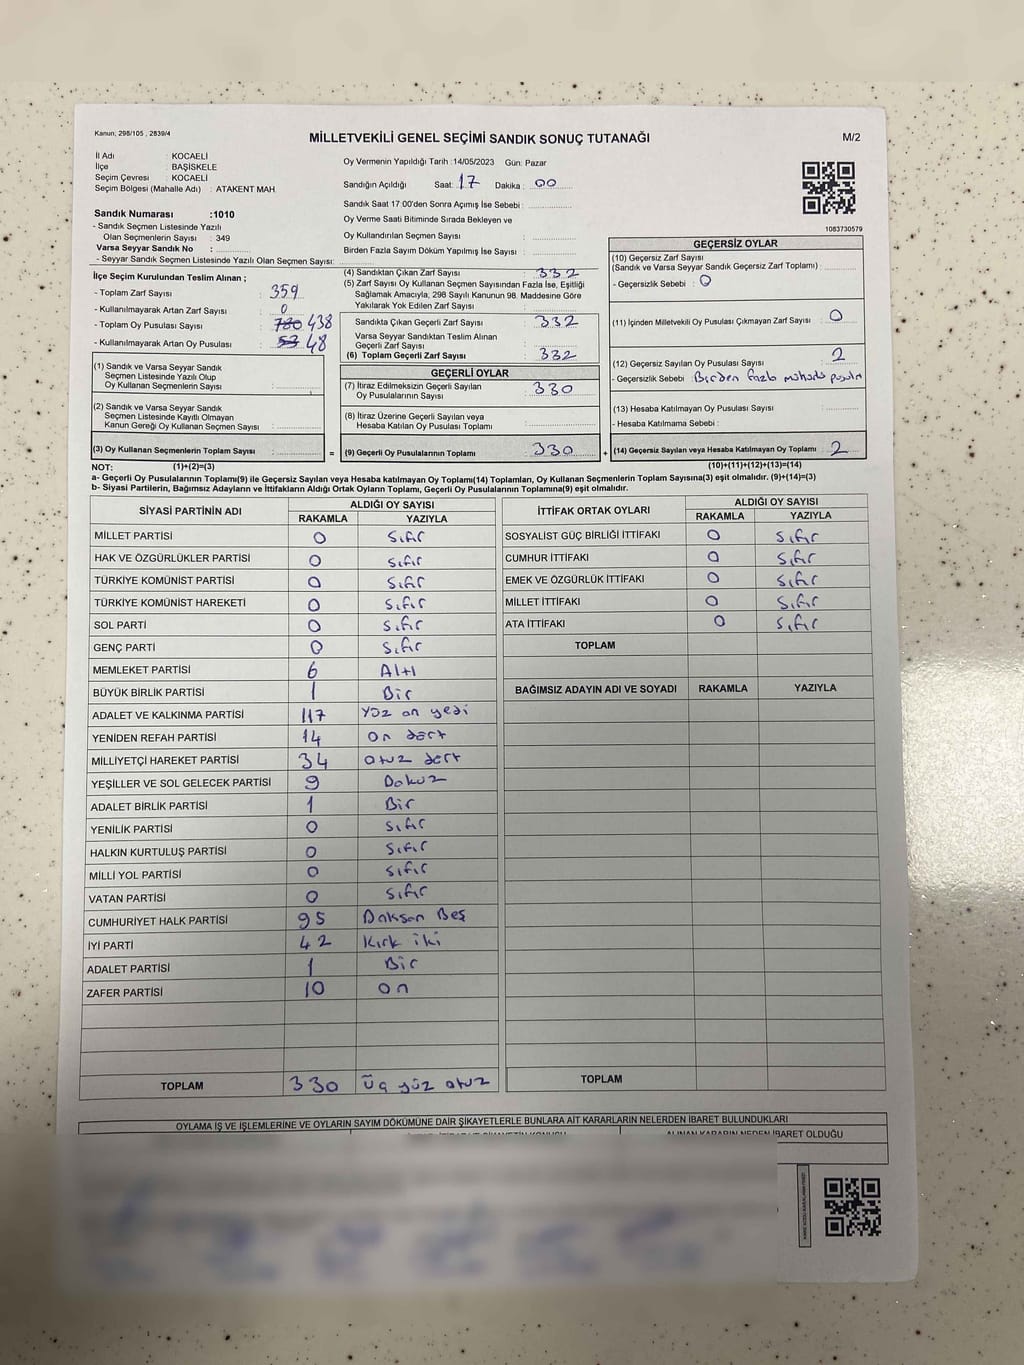 Kanun; 298/105 , 2839/4
MİLLETVEKİLİ GENEL SEÇİMİ SANDIK SONUÇ TUTANAĞI
M/2
İl Adı : KOCAELİ
İlçe : BAŞİSKELE
Seçim Çevresi : KOCAELİ
Seçim Bölgesi (Mahalle Adı) : ATAKENT MAH.
Sandık Numarası :1010
- Sandık Seçmen Listesinde Yazılı
Olan Seçmenlerin Sayısı : 349
Varsa Seyyar Sandık No :
- Seyyar Sandık Seçmen Listesinde Yazılı Olan Seçmen Sayısı:
Oy Vermenin Yapıldığı Tarih :14/05/2023 Gün: Pazar
Sandığın Açıldığı Saat: 17 Dakika : 00
Sandık Saat 17.00'den Sonra Açımış İse Sebebi :
Oy Verme Saati Bitiminde Sırada Bekleyen ve
Oy Kullandırılan Seçmen Sayısı :
Birden Fazla Sayım Döküm Yapılmış İse Sayısı :
1083730579
İlçe Seçim Kurulundan Teslim Alınan ;
- Toplam Zarf Sayısı : 359
- Kullanılmayarak Artan Zarf Sayısı : 0
- Toplam Oy Pusulası Sayısı : 780 438
- Kullanılmayarak Artan Oy Pusulası : 53 48
(1) Sandık ve Varsa Seyyar Sandık
Seçmen Listesinde Yazılı Olup
Oy Kullanan Seçmenlerin Sayısı :
(2) Sandık ve Varsa Seyyar Sandık
Seçmen Listesinde Kayıtlı Olmayan
Kanun Gereği Oy Kullanan Seçmen Sayısı :
(3) Oy Kullanan Seçmenlerin Toplam Sayısı :
=
(4) Sandıktan Çıkan Zarf Sayısı : 332
(5) Zarf Sayısı Oy Kullanan Seçmen Sayısından Fazla İse, Eşitliği
Sağlamak Amacıyla, 298 Sayılı Kanunun 98. Maddesine Göre
Yakılarak Yok Edilen Zarf Sayısı :
Sandıkta Çıkan Geçerli Zarf Sayısı : 332
Varsa Seyyar Sandıktan Teslim Alınan
Geçerli Zarf Sayısı :
(6) Toplam Geçerli Zarf Sayısı : 332
GEÇERLİ OYLAR
(7) İtiraz Edilmeksizin Geçerli Sayılan
Oy Pusulalarının Sayısı : 330
(8) İtiraz Üzerine Geçerli Sayılan veya
Hesaba Katılan Oy Pusulası Toplamı :
(9) Geçerli Oy Pusulalarının Toplamı : 330
+
GEÇERSİZ OYLAR
(10) Geçersiz Zarf Sayısı
(Sandık ve Varsa Seyyar Sandık Geçersiz Zarf Toplamı) :
- Geçersizlik Sebebi : 0
(11) İçinden Milletvekili Oy Pusulası Çıkmayan Zarf Sayısı : 0
(12) Geçersiz Sayılan Oy Pusulası Sayısı : 2
- Geçersizlik Sebebi : Birden fazla
(13) Hesaba Katılmayan Oy Pusulası Sayısı :
- Hesaba Katılmama Sebebi :
(14) Geçersiz Sayılan veya Hesaba Katılmayan Oy Toplamı : 2
NOT: (1)+(2)=(3)
(10)+(11)+(12)+(13)=(14)
a- Geçerli Oy Pusulalarının Toplamı(9) ile Geçersiz Sayılan veya Hesaba Katılmayan Oy Toplamı(14) Toplamları, Oy Kullanan Seçmenlerin Toplam Sayısına(3) eşit olmalıdır. (9)+(14)=(3)
b- Siyasi Partilerin, Bağımsız Adayların ve İttifakların Aldığı Ortak Oyların Toplamı, Geçerli Oy Pusulalarının Toplamına(9) eşit olmalıdır.
SİYASİ PARTİNİN ADI ALDIĞI OY SAYISI
RAKAMLA YAZIYLA
MİLLET PARTİSİ 0 Sıfır
HAK VE ÖZGÜRLÜKLER PARTİSİ 0 sıfır
TÜRKİYE KOMÜNİST PARTİSİ 0 Sıfır
TÜRKİYE KOMÜNİST HAREKETİ 0 Sıfır
SOL PARTİ 0 Sıfır
GENÇ PARTİ 0 Sıfır
MEMLEKET PARTİSİ 6 Altı
BÜYÜK BİRLİK PARTİSİ 1 Bir
ADALET VE KALKINMA PARTİSİ 117 Yüz on yedi
YENİDEN REFAH PARTİSİ 14 On dört
MİLLİYETÇİ HAREKET PARTİSİ 34 otuz dört
YEŞİLLER VE SOL GELECEK PARTİSİ 9 Dokuz
ADALET BİRLİK PARTİSİ 1 Bir
YENİLİK PARTİSİ 0 Sıfır
HALKIN KURTULUŞ PARTİSİ 0 Sıfır
MİLLİ YOL PARTİSİ 0 Sıfır
VATAN PARTİSİ 0 Sıfır
CUMHURİYET HALK PARTİSİ 95 Doksan Beş
İYİ PARTİ 42 Kırk iki
ADALET PARTİSİ 1 Bir
ZAFER PARTİSİ 10 on
TOPLAM 330 Üç yüz otuz
İTTİFAK ORTAK OYLARI ALDIĞI OY SAYISI
RAKAMLA YAZIYLA
SOSYALİST GÜÇ BİRLİĞİ İTTİFAKI 0 Sıfır
CUMHUR İTTİFAKI 0 Sıfır
EMEK VE ÖZGÜRLÜK İTTİFAKI 0 Sıfır
MİLLET İTTİFAKI 0 Sıfır
ATA İTTİFAKI 0 Sıfır
TOPLAM
BAĞIMSIZ ADAYIN ADI VE SOYADI RAKAMLA YAZIYLA
TOPLAM
OYLAMA İŞ VE İŞLEMLERİNE VE OYLARIN SAYIM DÖKÜMÜNE DAİR ŞİKAYETLERLE BUNLARA AİT KARARLARIN NELERDEN İBARET BULUNDUKLARI
ALINAN KARARIN NEDEN İBARET OLDUĞU